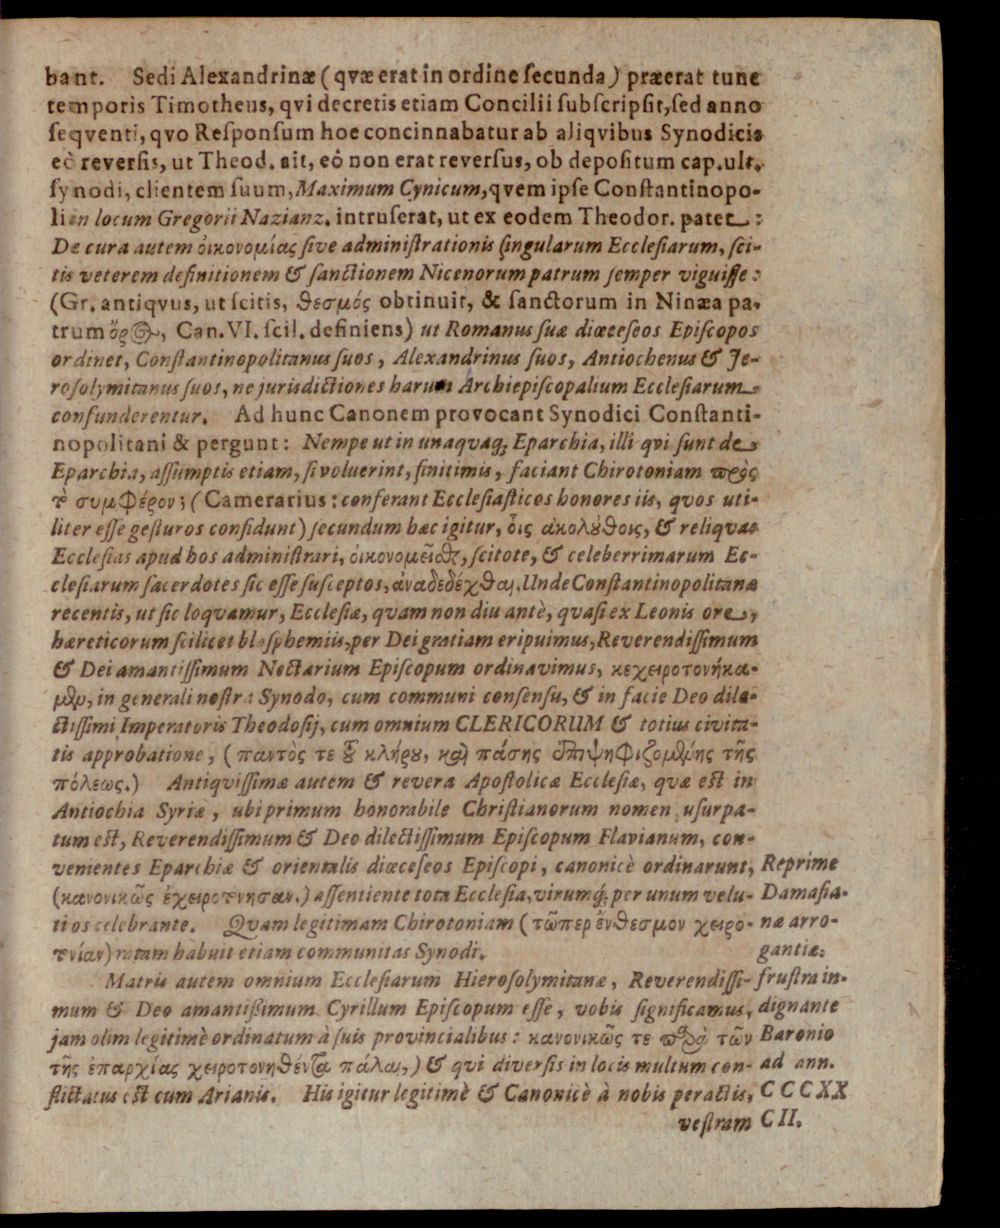 bant. Sedi Alexandrinæ (qvæ erat in ordine ſecunda) præerat tunc
temporis Timotheus, qvi decretis etiam Concilii ſubſcripſit, ſed anno
ſeqventi, qvo Reſponſum hoc concinnabatur ab aliqvibus Synodicis
eò reverſis, ut Theod. ait, eô non erat reverſus, ob depoſitum cap. ult.
ſynodi, clientem ſuum, Maximum Cynicum, qvem ipſe Conſtantinopo-
li in locum Gregorii Nazianz. intruſerat, ut ex eodem Theodor. patet:
De cura autem οἰκονομίας ſive adminiſtrationis ſingularum Eccleſiarum, ſci-
tis veterem definitionem & ſanctionem Nicenorum patrum ſemper viguiſſe:
(Gr. antiqvus, ut ſcitis, θεσμός obtinuit, & ſanctorum in Ninæa pa-
trum ὅρος, Can. VI. ſcil. definiens) ut Romanus ſuæ diœceſeos Epiſcopos
ordinet, Conſtantinopolitanus ſuos, Alexandrinus ſuos, Antiochenus & Je-
roſolymitanus ſuos, ne jurisdictiones harum Archiepiſcopalium Eccleſiarum
confunderentur. Ad hunc Canonem provocant Synodici Conſtanti-
nopolitani & pergunt: Nempe ut in unaquaq; Eparchia, illi qvi ſunt de
Eparchia, aſſumptis etiam, ſi voluerint, finitimis, faciant Chirotoniam πρὸς
τὸ συμφέρον; (Camerarius: conferant Eccleſiaſticos honores iis, quos uti-
liter eſſe geſturos confidunt) ſecundum hæc igitur, οἷς ἀκολούθοις, & reliquas
Eccleſias apud hos adminiſtrari, οἰκονομεῖσθ, ſcitote, & celeberrimarum Ec-
cleſiarum ſacerdotes ſic eſſe ſuſceptos, ἀναδεδέχθαι. Unde Conſtantinopolitanæ
recentis, ut ſic loquamur, Eccleſiæ, quam non diu antè, quaſi ex Leonis ore,
hæreticorum ſcilicet blaſphemiis, per Dei gratiam eripuimus, Reverendiſſimum
& Dei amantiſſimum Nectarium Epiſcopum ordinavimus, κεχειροτονήκα-
μθμ, in generali noſtra Synodo, cum communi conſenſu, & in facie Deo dile-
ctiſſimi Imperatoris Theodoſij, cum omnium CLERICORUM & totius civita-
tis approbatione, (παντός τε τοῦ κλήρου, καὶ πάσης ἐπιψηφιζομένης τῆς
πόλεως.) Antiquiſſimæ autem & revera Apoſtolicæ Eccleſiæ, quæ eſt in
Antiochia Syriæ, ubi primum honorabile Chriſtianorum nomen uſurpa-
tum eſt, Reverendiſſimum & Deo dilectiſſimum Epiſcopum Flavianum, con-
venientes Eparchiæ & orientalis diœceſeos Epiſcopi, canonicè ordinarunt,
(κανονικῶς ἐχειροτόνησαν.) aſſentiente tota Eccleſia, virumq́; per unum velu-
ti os celebrante. Quam legitimam Chirotoniam (τῶπερ ἔνθεσμον χειρο-
τονίαν) ratam habuit etiam communitas Synodi.
Matris autem omnium Eccleſiarum Hieroſolymitanæ, Reverendiſſi-
mum & Deo amantißimum Cyrillum Epiſcopum eſſe, vobis ſignificamus,
jam olim legitimè ordinatum à ſuis provincialibus: κανονικῶς τε παρὰ τῶν
τῆς ἐπαρχίας χειροτονηθέντα πάλαι,) & qvi diverſis in locis multum con-
flictatus eſt cum Arianis. His igitur legitimè & Canonicè à nobis peractis,
veſtram
Reprime
Damaſia-
næ arro-
gantiæ:
fruſtra in-
dignante
Baronio
ad ann.
CCCXX
CII.